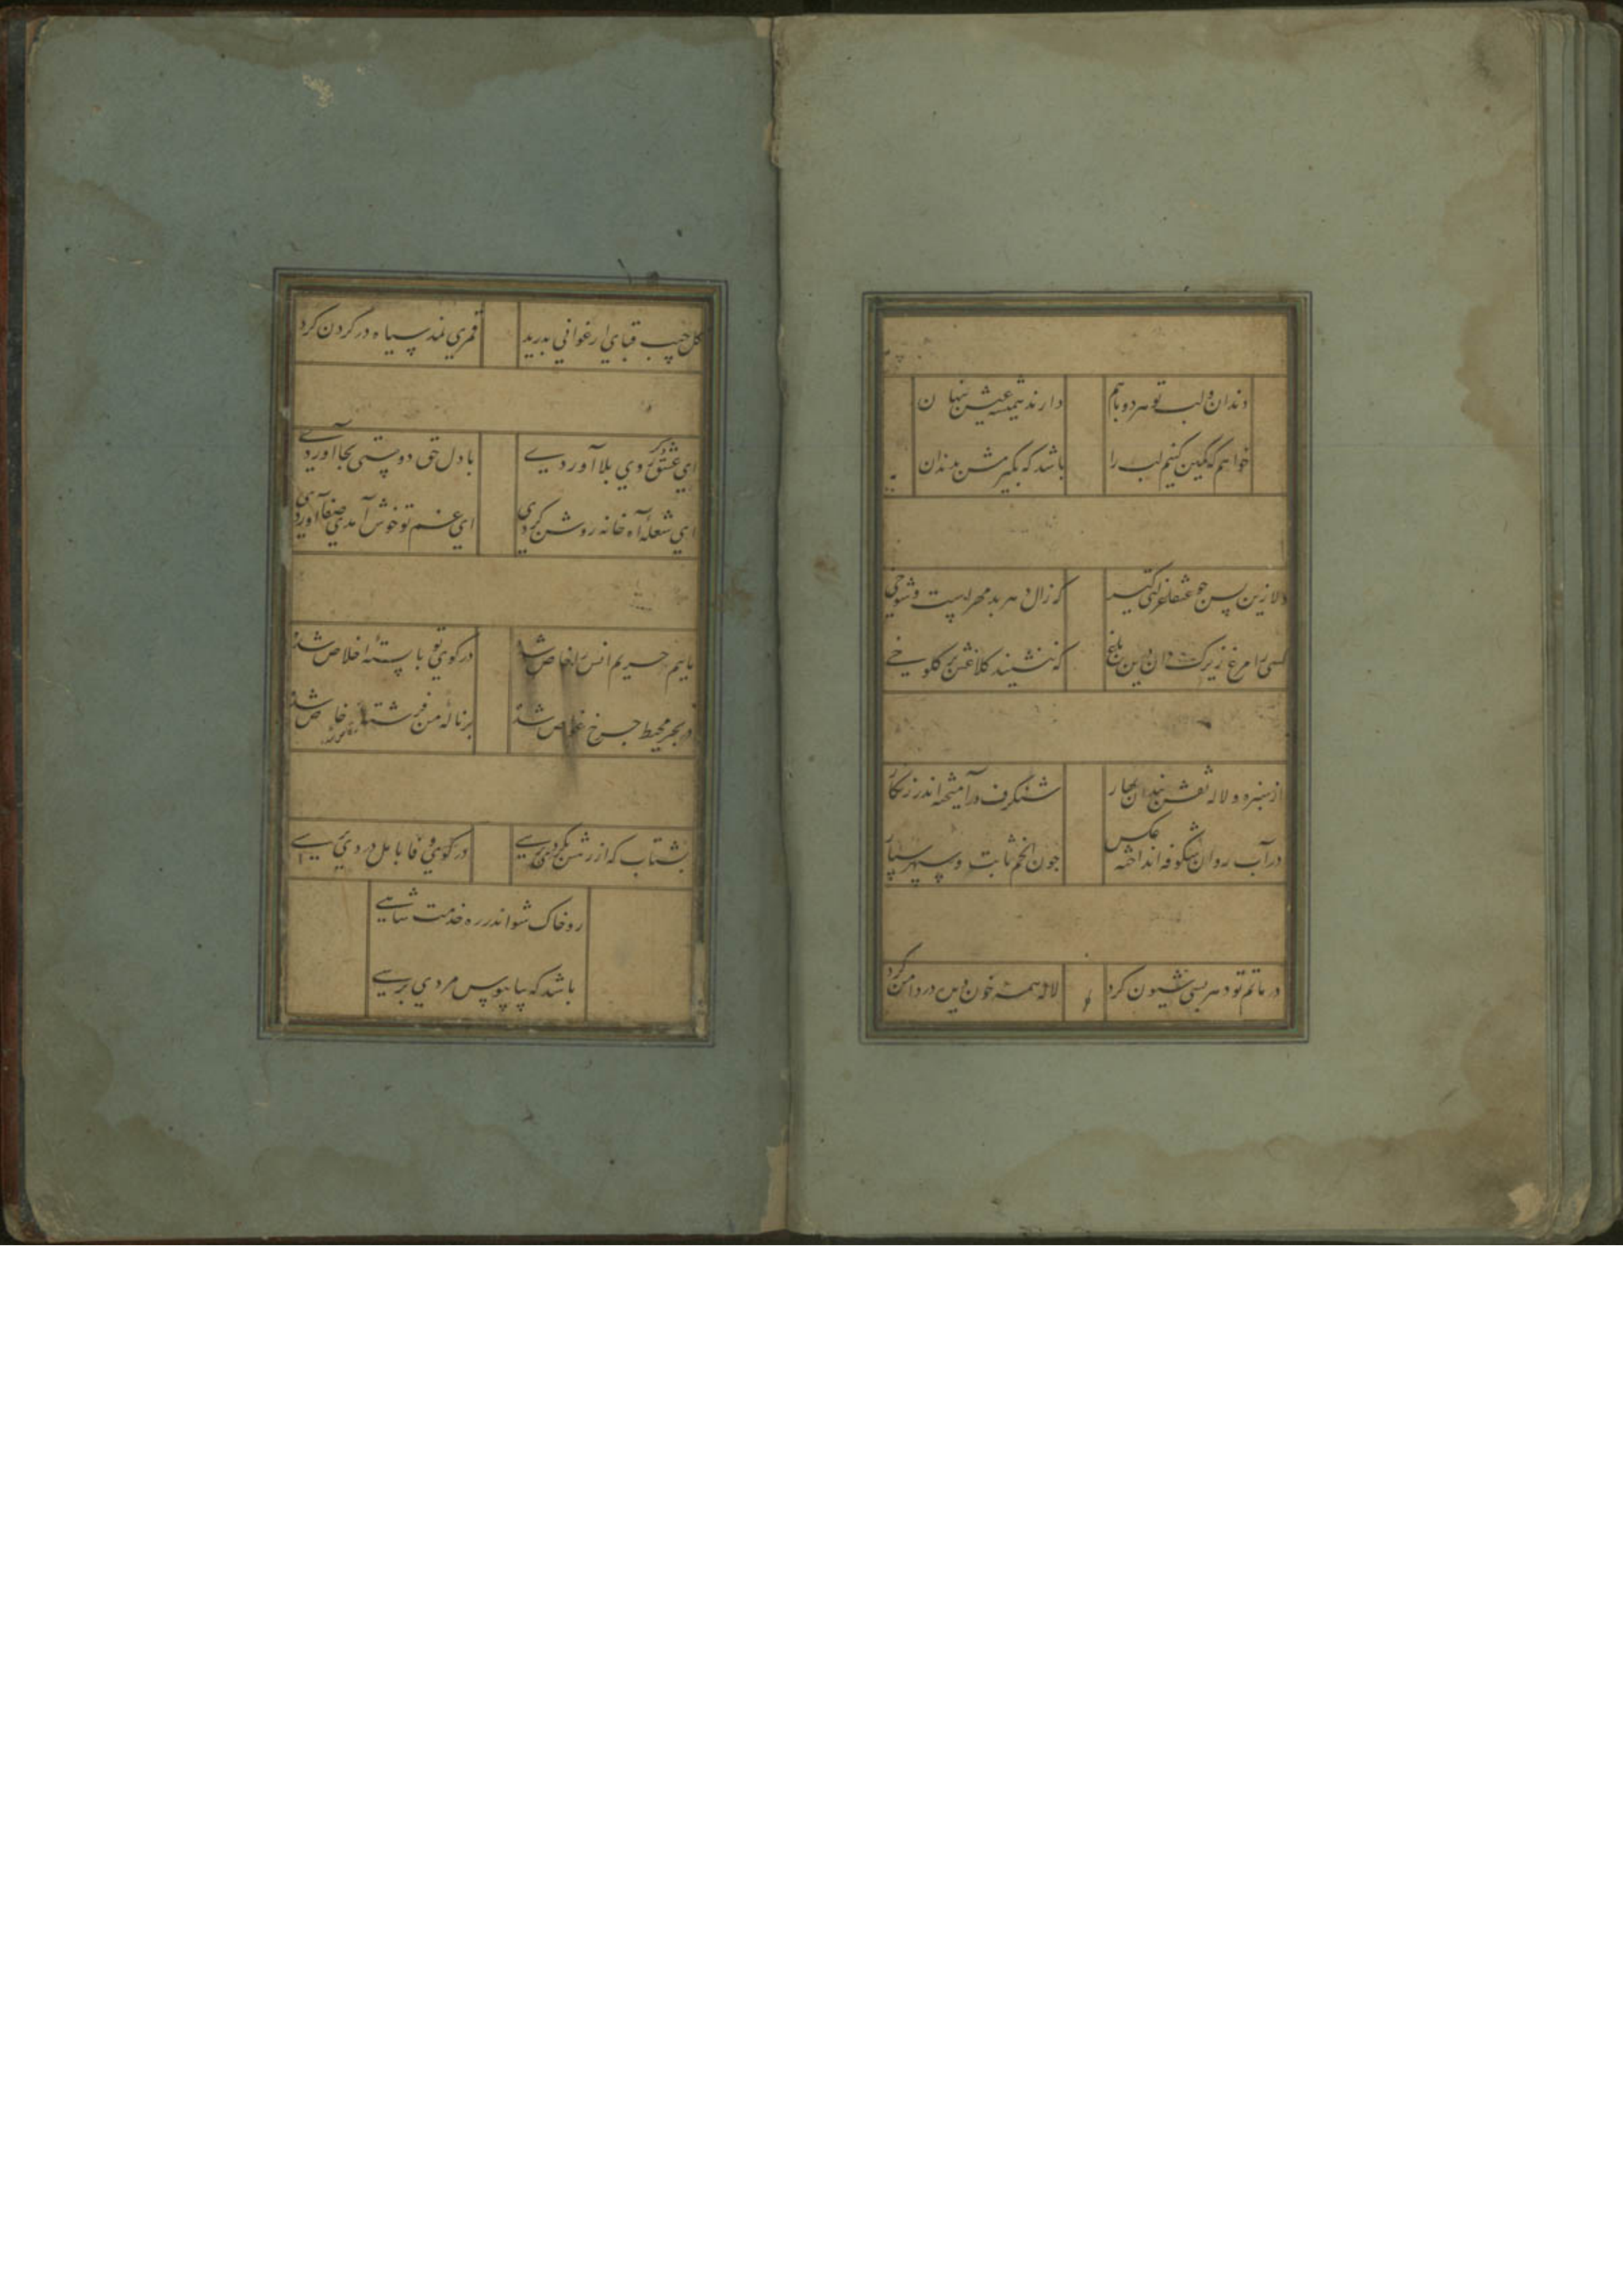 دندان و لب تو هر دو باهم دارند همیشه عیش پنهان
خواهم که نگین کنیم لب را باشد که بگیرمش بدندان
دلا زین پس جو عنقا عزلتی گیر که زال دهر بدمهرست و شوخی
کسی را مرغ زیرک دان درین باغ که ننشیند کلاغش بر کلوخی
از سبزه و لاله نقش بندان بهار شنکرف درآمیخته اندر زنکار
در آب روان شکوفه انداخته عکس جون انجم ثابت و سپهر سیار
در ماتم تو دهر بسی شیون کرد لاله همه خون دیده در دامن کرد
گل جیب قبای ارغوانی بدرید قمری نمد سیاه در گردن کرد
ای عشق دگر روی بلا آوردی با دل حق دوستی بجا آوردی
ای شعله آه خانه روشن کردی ای غم تو خوش آمدی صفا آوردی
ماییم حریم انس را خاص شده در کوی تو بابسته اخلاص شده
در بحر محیط جرخ غواص شده بر ناله من فرشته رقاص شده
بشتاب که از رشن بگردی برسی در کوی وفا با مل دردی برسی
رو خاک شو اندر ره خدمت شاهی
باشد که بپابوس مردی برسی